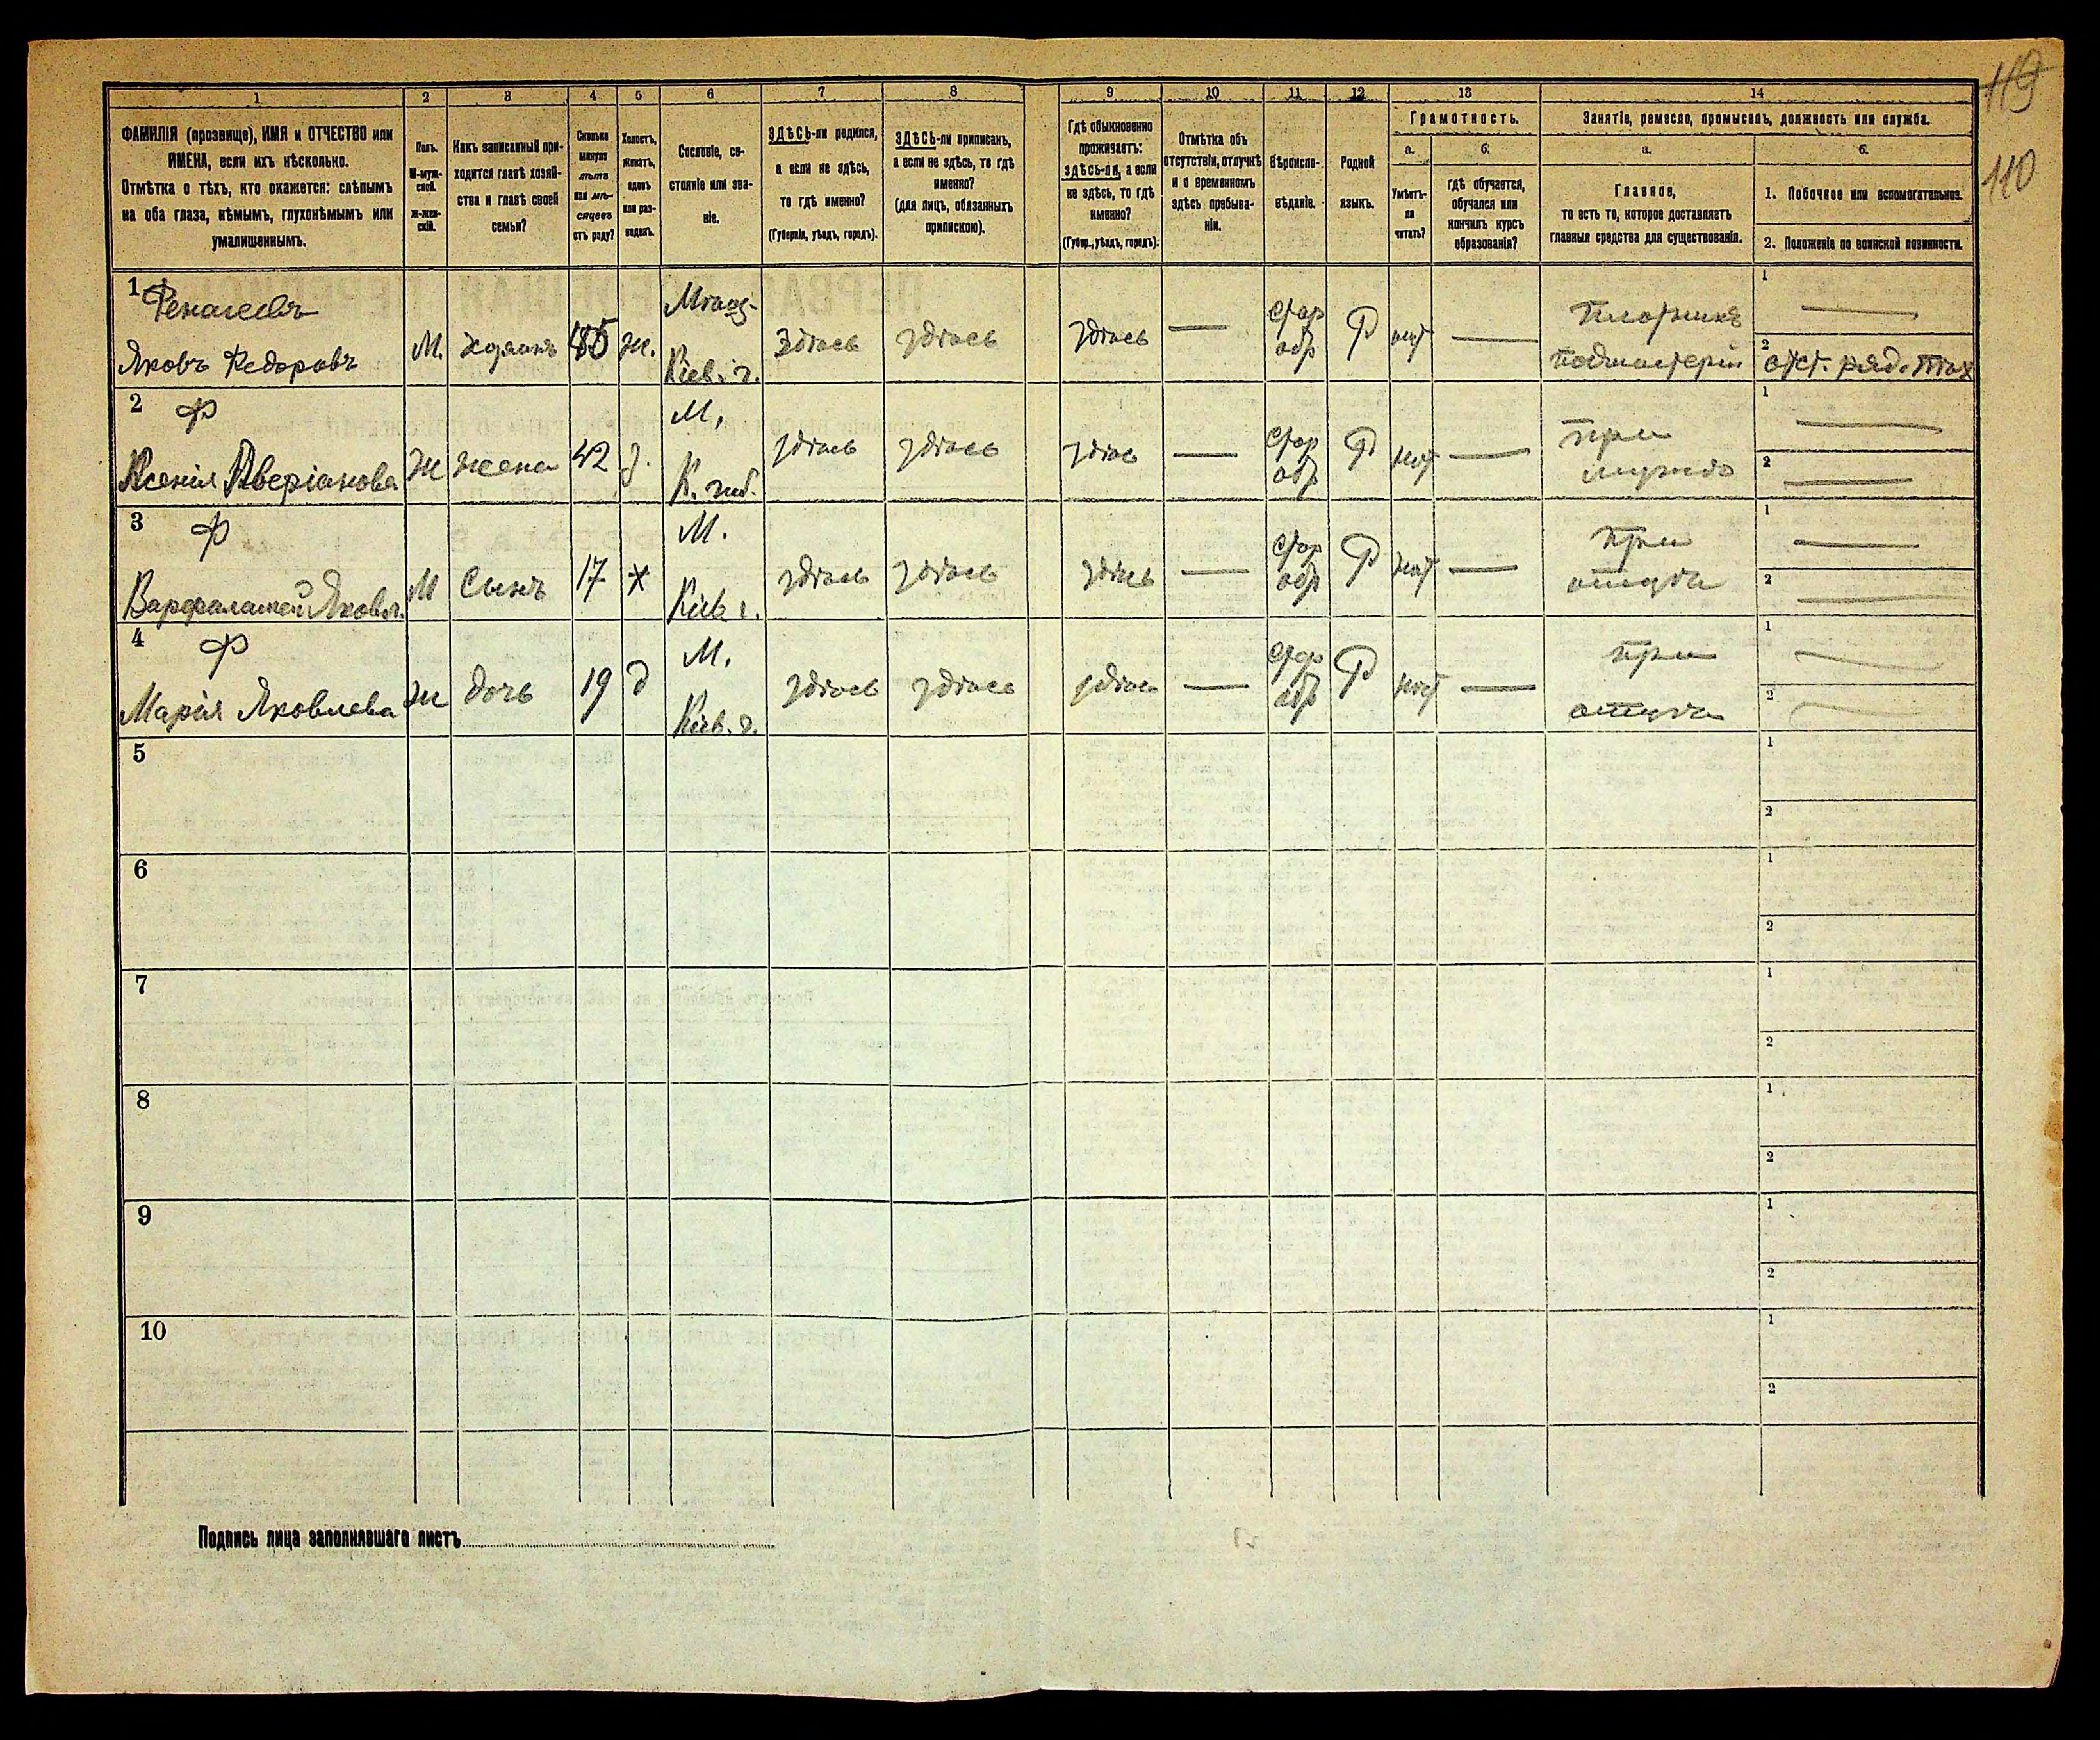 119
110
1 2 3 4 5 6 7 8 9 10 11 12 13 14
ФАМИЛІЯ (прозвище), ИМЯ и ОТЧЕСТВО или
ИМЕНА, если ихъ нѣсколько.
Отмѣтка о тѣхъ, кто окажется: слѣпымъ
на оба глаза, нѣмымъ, глухонѣмымъ или
умалишеннымъ.
Полъ.
М-муж-
ской.
ж-жен-
скій.
Какъ записанный при-
ходится главѣ хозяй-
ства и главѣ своей
семьи?
Сколько
минуло
лѣтъ
или мѣ-
сяцевъ
отъ роду?
Холостъ,
женатъ,
вдовъ
или раз-
веденъ.
Сословіе, со-
стояніе или зва-
ніе.
ЗДѢСЬ-ли родился,
а если не здѣсь,
то гдѣ именно?
(Губернія, уѣздъ, городъ).
ЗДѢСЬ-ли приписанъ,
а если не здѣсь, то гдѣ
именно?
(для лицъ, обязанныхъ
припискою).
Гдѣ обыкновенно
проживаетъ:
здѣсь-ли, а если
не здѣсь, то гдѣ
именно?
(Губер., уѣздъ, городъ).
Отмѣтка объ
отсутствіи, отлучкѣ
и о временномъ
здѣсь пребыва-
ніи.
Вѣроиспо-
вѣданіе.
Родной
языкъ.
Грамотность.
а.
Умѣетъ-
ли
читать?
б.
гдѣ обучается,
обучался или
кончилъ курсъ
образованія?
Занятіе, ремесло, промыселъ, должность или служба.
а.
Главное,
то есть то, которое доставляетъ
главныя средства для существованія.
б.
1. Побочное или вспомогательное.
2. Положеніе по воинской повинности.
1
Яковъ Федоровъ
М.
45
ж.
Кіев. г.
здѣсь
здѣсь
здѣсь
стар
обр
Р
нѣт
Плотникъ
подмастерій
1
2
отст. ряд.
2
Ф
Ксенія Аверіанова
Ж
жена
42
З.
М.
К. губ.
здѣсь
здѣсь
здѣсь
стар
обр
Р
нѣт
при
мужѣ
1
2
3
Ф
Варфаламей Яковл.
М
Сынъ
17
х
М.
Кіев. г.
здѣсь
здѣсь
здѣсь
стар
обр
Р
нѣт
при
отцѣ
1
2
4
Ф
Марія Яковлева
Ж
дочь
19
д
М.
Кіев. г.
здѣсь
здѣсь
здѣсь
стар
обр
Р
нѣт
при
отцѣ
1
2
5
1
2
6
1
2
7
1
2
8
1
2
9
1
2
10
1
2
Подпись лица заполнявшаго листъ